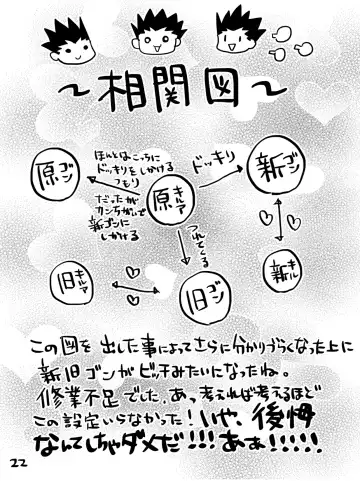 ～相関図～
原ゴン
ほんとはこっちに
ドッキリをしかける
つもり
だったが
カンちがいで
新ゴンに
しかける
原キルア
ドッキリ
新ゴン
つれてくる
旧キルア
旧ゴン
新キル
この図を出した事によってさらに分かりづらくなった上に
新旧ゴンがビッチみたいになったね。
修業不足でした。あっ考えれば考えるほど
この設定いらなかった!いや、後悔
なんてしちゃダメだ!!!あぁ!!!!!
22